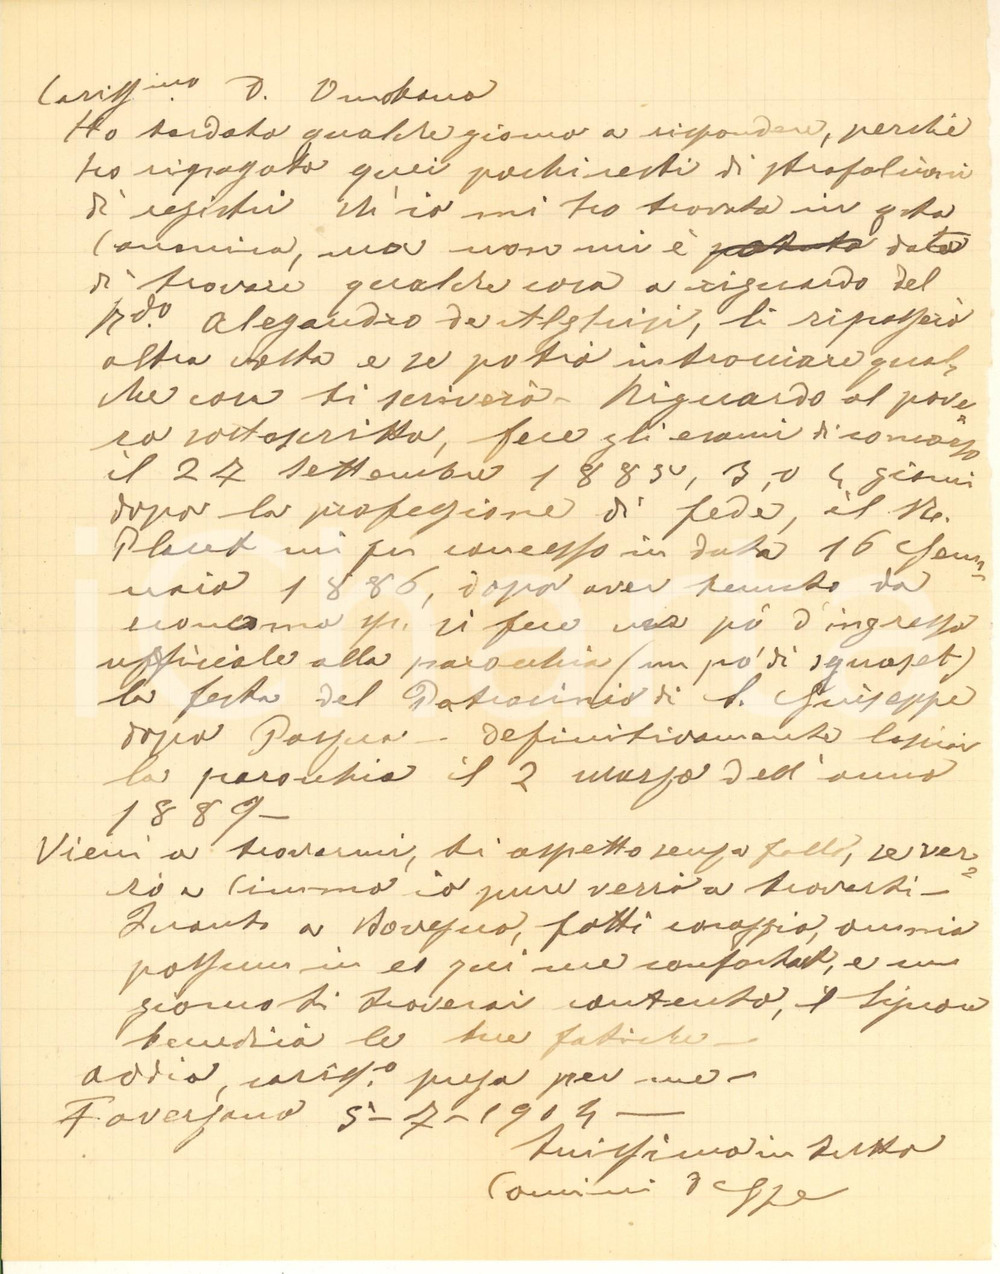 Cariss.mo D. Omobono
Ho tardato qualche giorno a rispondere, perchè
ho ripassato quei pochi resti di strafalcioni
di registri ch'io mi ho trovato in qsta
Canonica, ma non mi è potuto dato
di trovare qualche cosa a riguardo del
Rdo. Alessandro de Alghisi, li ripasserò
altra volta e se potrò introvare qual-
che cosa ti scriverò - Riguardo al pove-
ro sottoscritto, fece gli esami di concorso
il 27 settembre 1885, 3, o 4 giorni
dopo la professione di fede, il R.
Placet mi fu concesso in data 16 Gen-
naio 1886, dopo aver tenuto da
economo si fece un pò d'ingresso
ufficiale alla parocchia (un pò di sguaset)
la festa del Patrocinio di S. Giuseppe
dopo Pasqua - definitivamente lasciai
la parochia il 2 marzo dell'anno
1889 -
Vieni a trovarmi, ti aspetto senza fallo, se ver-
rò a Cimmo io pure verrò a trovarti -
Quanto a Bovegno, fatti coraggio, omnia
possum in eo qui me confortat, e un
giorno ti troverai contento, il Signore
benedirà le tue fatiche -
Addio, cariss.o prega per me -
Faverzano 5 - 7 - 1904 -
Tuissimo in tutto
Comini D Gppe
iCharta